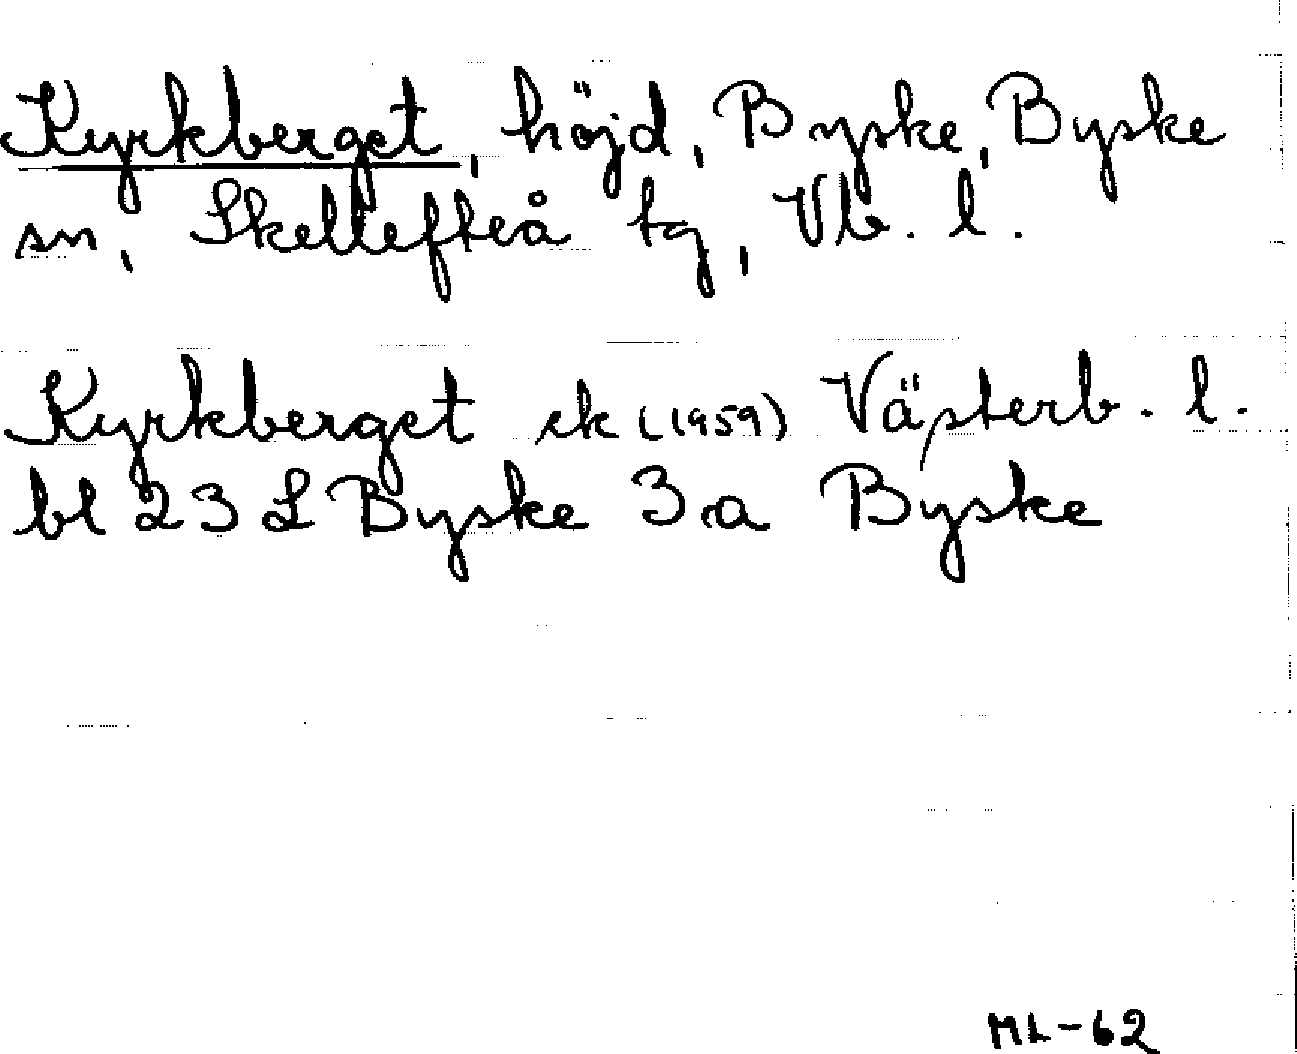 Kyrkberget, höjd, Byske, Byske
sn, Skellefteå tg, Vb. l.
Kyrkberget ek (1959) Västerb. l.
bl 23 L Byske 3 a Byske
ML-62